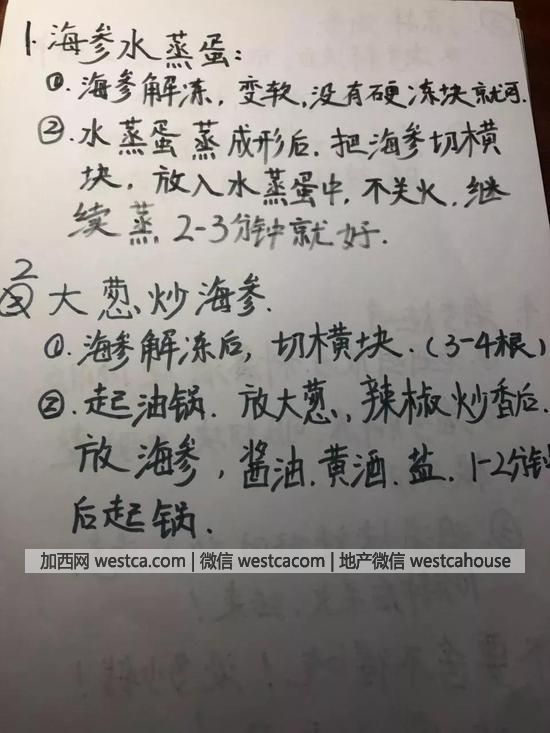 1.海参水蒸蛋:
①.海参解冻,变软,没有硬冻块就可.
②.水蒸蛋蒸成形后.把海参切横
块,放入水蒸蛋中,不关火.继
续蒸2-3分钟就好.
2
大葱炒海参.
①.海参解冻后,切横块.(3-4根)
②.起油锅.放大葱,辣椒炒香后.
放海参,酱油.黄酒.盐.1-2分钟
后起锅.
加西网 westca.com | 微信 westcacom | 地产微信 westcahouse